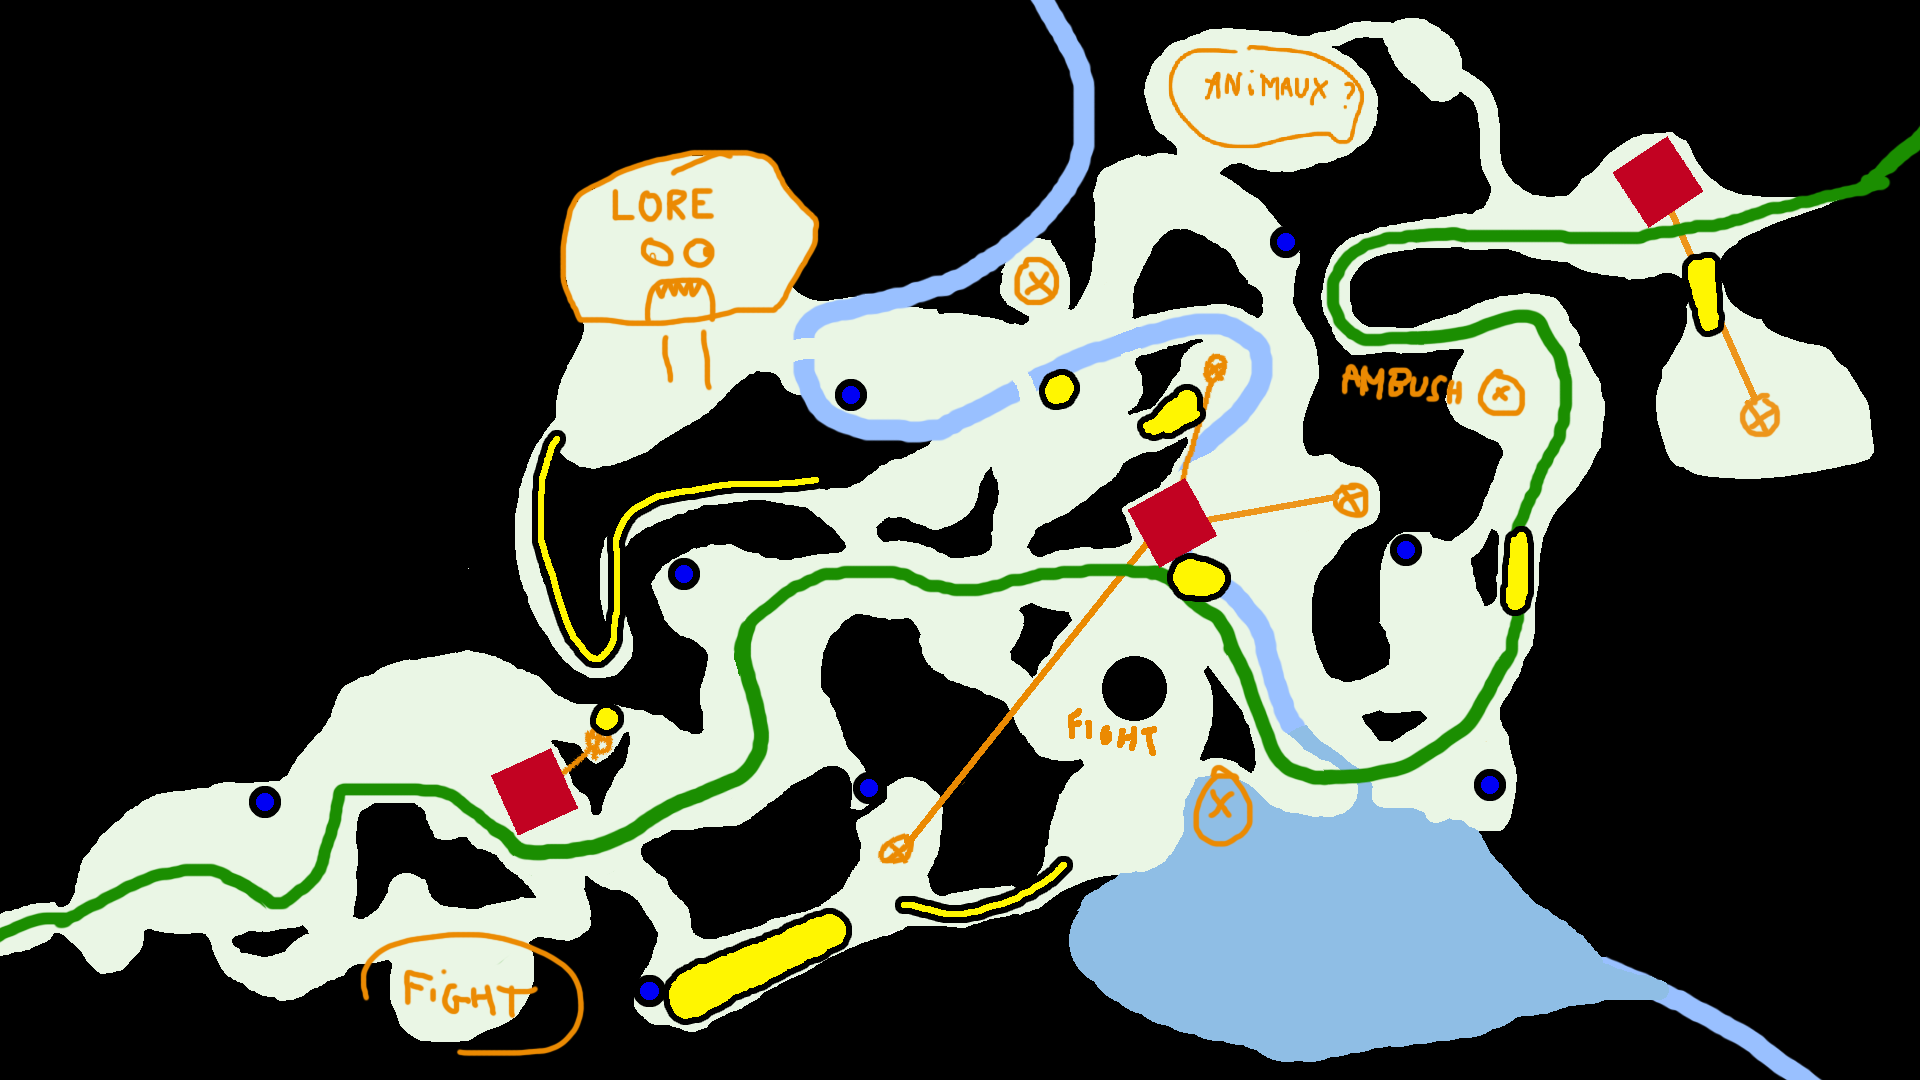 ANiMAUX ?
LORE
AMBUSH
FIGHT
FiGHT